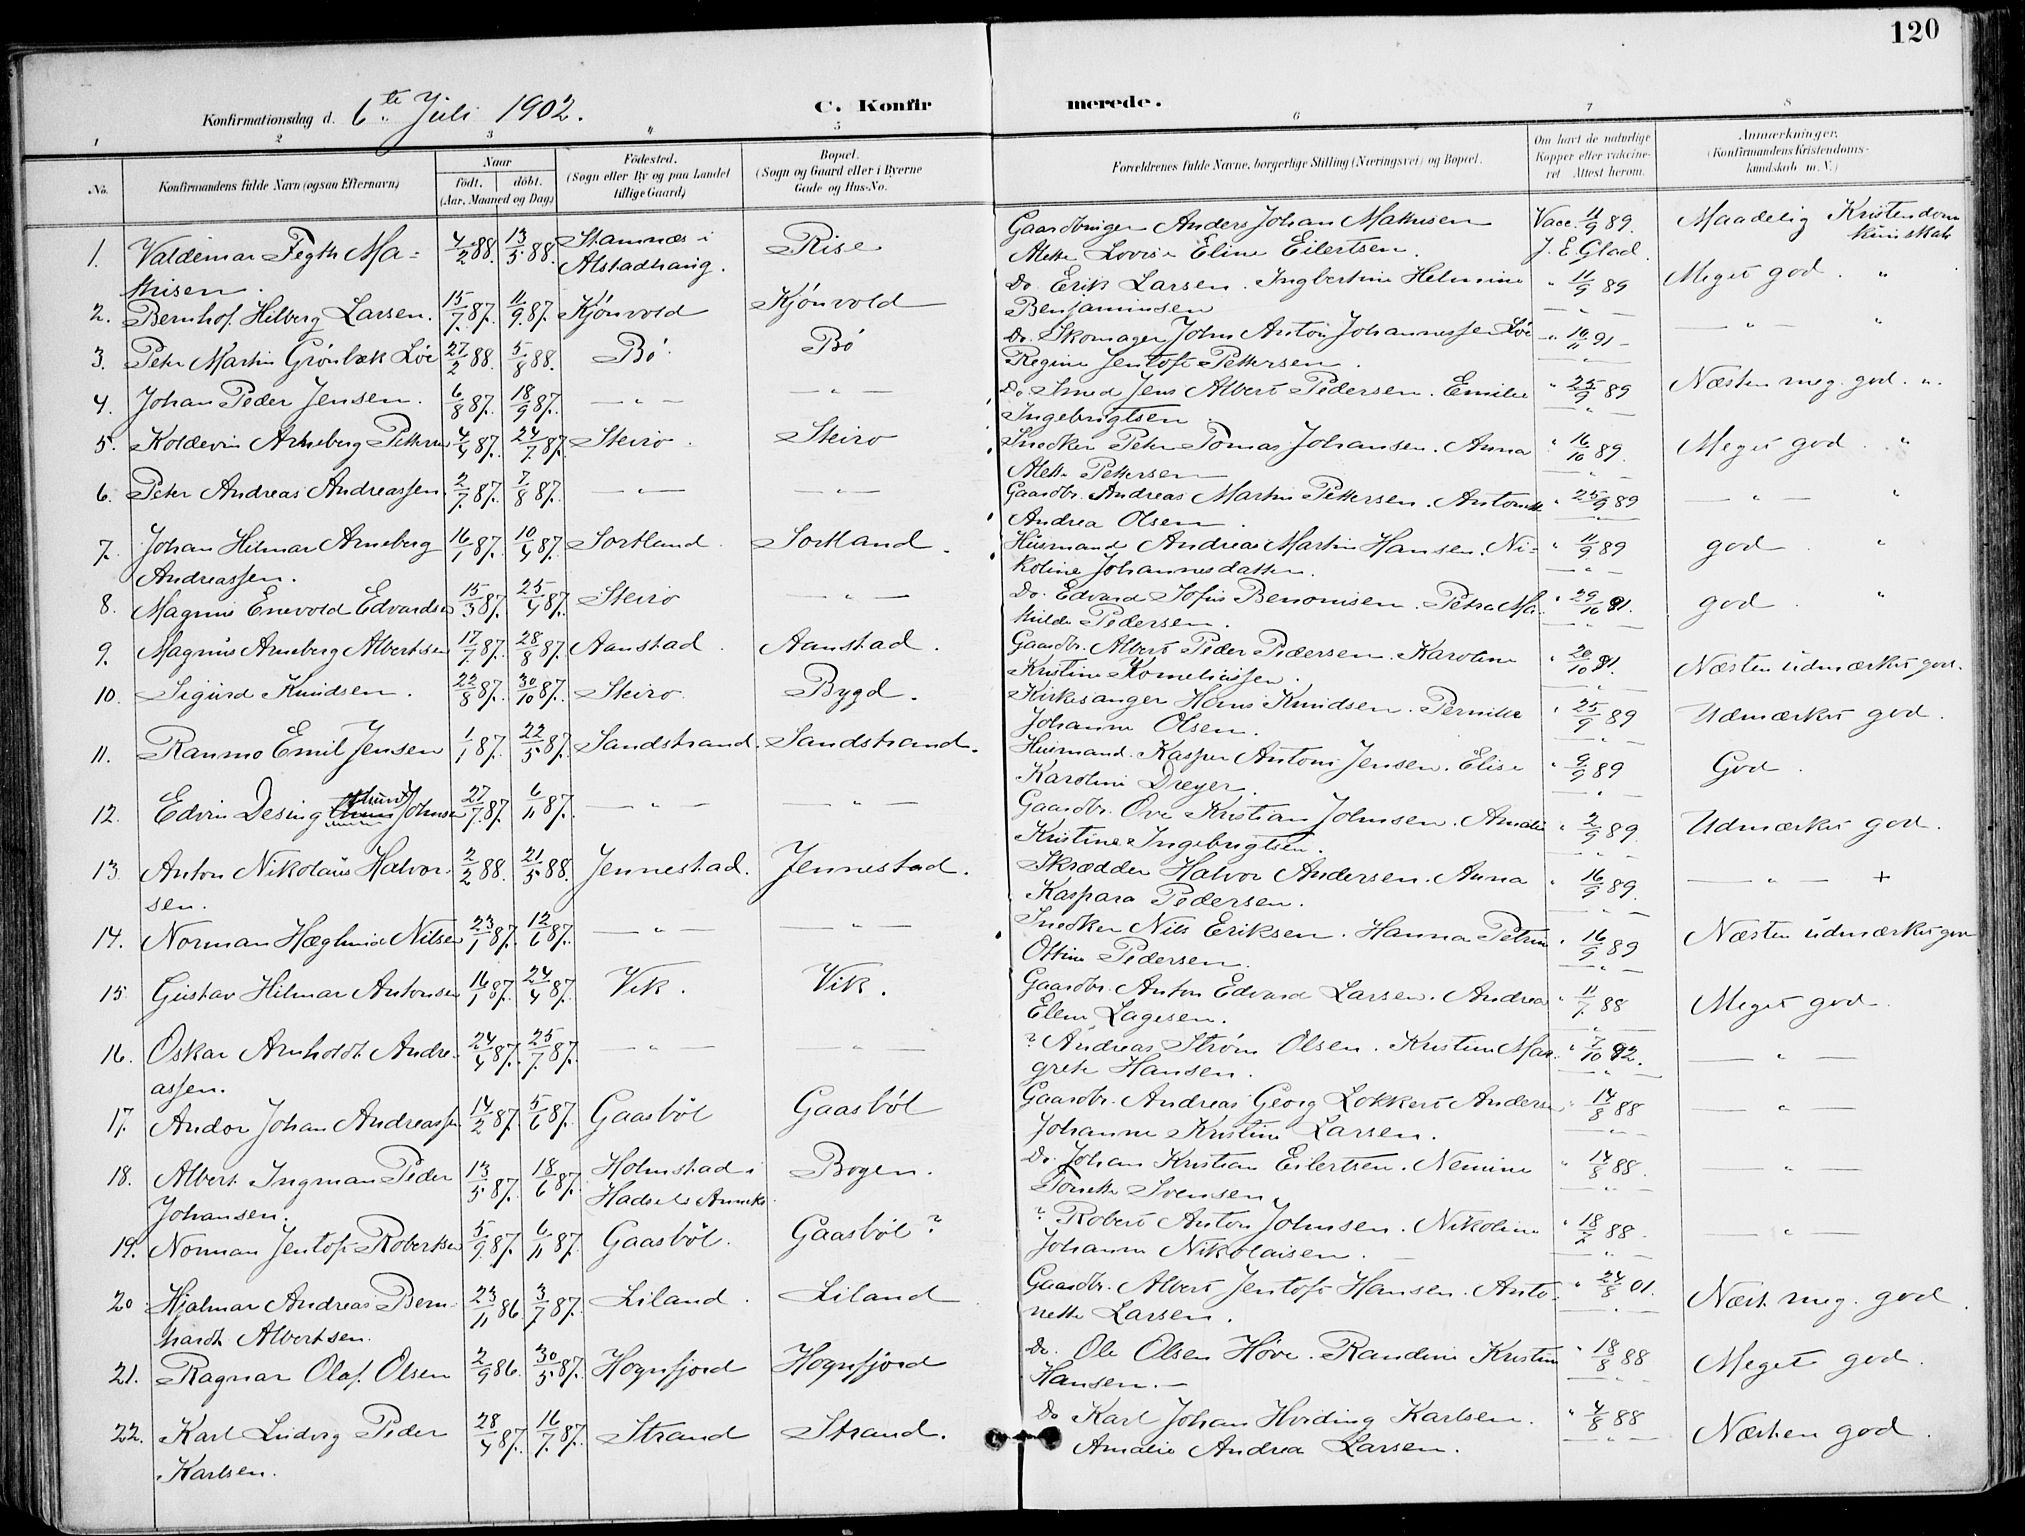 120
Konfirmationsdag d. 6te Juli 1902. C. Konfirmerede.
1 2 3 4 5 6 7 8
No. Konfirmandens fulde Navn (ogsaa Efternavn) Naar födt. döbt. (Aar, Maaned og Dag) Födested. (Sogn eller By og paa Landet tillige Gaard) Bopæl. (Sogn og Gaard eller i Byerne Gade og Hus-No. Forældrenes fulde Navne, borgerlige Stilling (Næringsvei) og Bopæl. Om havt de naturlige Kopper eller vaccineret Attest herom. Anmærkninger. (Konfirmandens Kristendomskundskab m. V.)
1. Valdemar Fegth Ma- 4/2 88. 13/5 88. Stamnæs i Rise Gaardbruger Anders Johan Mathisen Vacc. 11/9 89. Maadelig Kristendom
thisen. Alstadhaug. Alette Lovise Eline Eilertsen. J. E. Glad. kunskab
2. Bernhof Hilberg Larsen. 15/7 87. 11/9 87. Kjönvold Kjönvold Do. Erik Larsen. Ingbertine Helmine " 11/9 89 Meget god. "
Benjaminsen
3. Peter Martin Grönbæk Löe 27/2 88. 5/8 88. Bö Bö Do. Skomager John Anton Johannessen Löe " 10/11 91 — " "
Regine Jentoft Pettersen.
4. Johan Peder Jensen. 6/8 87. 18/9 87. — " — — " — Do Smed Jens Albert Pedersen. Emilie " 25/9 89 Næsten meg. god. "
Ingebrigtsen
5. Koldevin Arneberg Pettersen 4/4 87. 24/7 87. Steiro. Steiro Snedker Peter Tomas Johansen. Anna " 16/10 89. Meget god. "
Alette Pettersen
6. Peter Andreas Andreassen. 2/7 87. 7/8 87. — " — — " — Gaardbr. Andreas Martin Pettersen. Antonette " 25/9 89 — " — "
Andrea Olsen.
7. Johan Hilmar Arneberg 16/1 87. 10/4 87. Sortland. Sortland. Husmand Andreas Martin Hansen. Ni- " 11/9 89 god "
Andreassen. koline Johannesdatter.
8. Magnus Enevold Edvardsen 15/3 87. 25/4 87. Steiro — " — Do. Edvard Sofus Benonisen. Petra Ma- " 29/10 91. god. "
thilde Pedersen.
9. Magnus Arneberg Albertsen 17/7 87. 28/8 87. Aanstad. Aanstad. Gaardbr. Albert Peder Pedersen. Karoline " 20/10 91. Næsten udmærket god.
Kristine Korneliussen.
10. Sigurd Knudsen. 22/8 87. 30/10 87. Steiro. Bygd. Kirkesanger Hans Knudsen. Pernille " 25/9 89 Udmærket god.
Johanne Olsen.
11. Ranmo Emil Jensen 1/1 87. 22/5 87. Sandstrand. Sandstrand. Husmand. Kasper Antoni Jensen. Elise " 9/9 89 God.
Karoline Dreyer.
12. Edvin Desing Johnsen 27/7 87. 6/11 87. — " — — " — Gaardbr. Ove Kristian Johnsen. Amalie " 2/9 89. Udmærket god.
Kristine Ingebrigtsen.
13. Anton Nikolaus Halvor- 2/2 88. 21/5 88. Jennestad. Jennestad. Skrædder Halvor Andersen. Anna " 16/9 89. — " — +
sen. Kaspara Pedersen.
14. Norman Hæglund Nilsen 23/1 87. 12/6 87. — " — — " — Snedker Nils Eriksen. Hanna Petrine " 16/9 89 Næsten udmærket god
Ottine Pedersen.
15. Gustav Hilmar Antonsen 16/1 87. 24/4 87. Vik. Vik. Gaardbr. Anton Edvard Larsen. Andrea " 11/7 88 Meget god
Elene Lagesen.
16. Oskar Arnholdt Andre- 24/4 87. 25/7 87. — " — — " — ? Andreas Ström Olsen. Kristine Mar- " 7/10 92. — " —
assen. grete Hansen.
17. Andor Johan Andreassen 14/2 87. 5/6 87. Gaasböl Gaasböl Gaardbr. Andreas Georg Lokkert Andersen " 14/8 88 — " —
Johanne Kristine Larsen.
18. Albert Ingman Peder 13/5 87. 18/6 87. Holmstad i Bogen. Do. Johan Kristian Eilertsen. Nemine " 14/8 88. — " —
Johansen. Hadsels Anneks. Tonette Svensen.
19. Norman Jentoft Robertsen 5/9 87. 6/11 87. Gaasböl. Gaasböl? ? Robert Anton Johnsen. Nikoline " 18/7 88. — " —
Johanne Nikolaisen.
20 Hjalmar Andreas Bern- 23/11 86. 3/7 87. Liland. Liland Gaardbr. Albert Jentoft Hansen. Anto- " 24/8 01. Næst. meg. god.
hardt Albertsen. nette Larsen.
21. Ragnar Olaf Olsen 2/9 86. 30/5 87. Hognfjord Hognfjord Do. Ole Olsen Höve. Randine Kristine " 18/8 88 Meget god.
Hansen.
22. Karl Ludvig Peder 28/4 87. 16/7 87. Strand Strand. Do Karl Johan Hveding Karlsen. " 4/8 88 Næsten god.
Karlsen. Amalie Andrea Larsen.